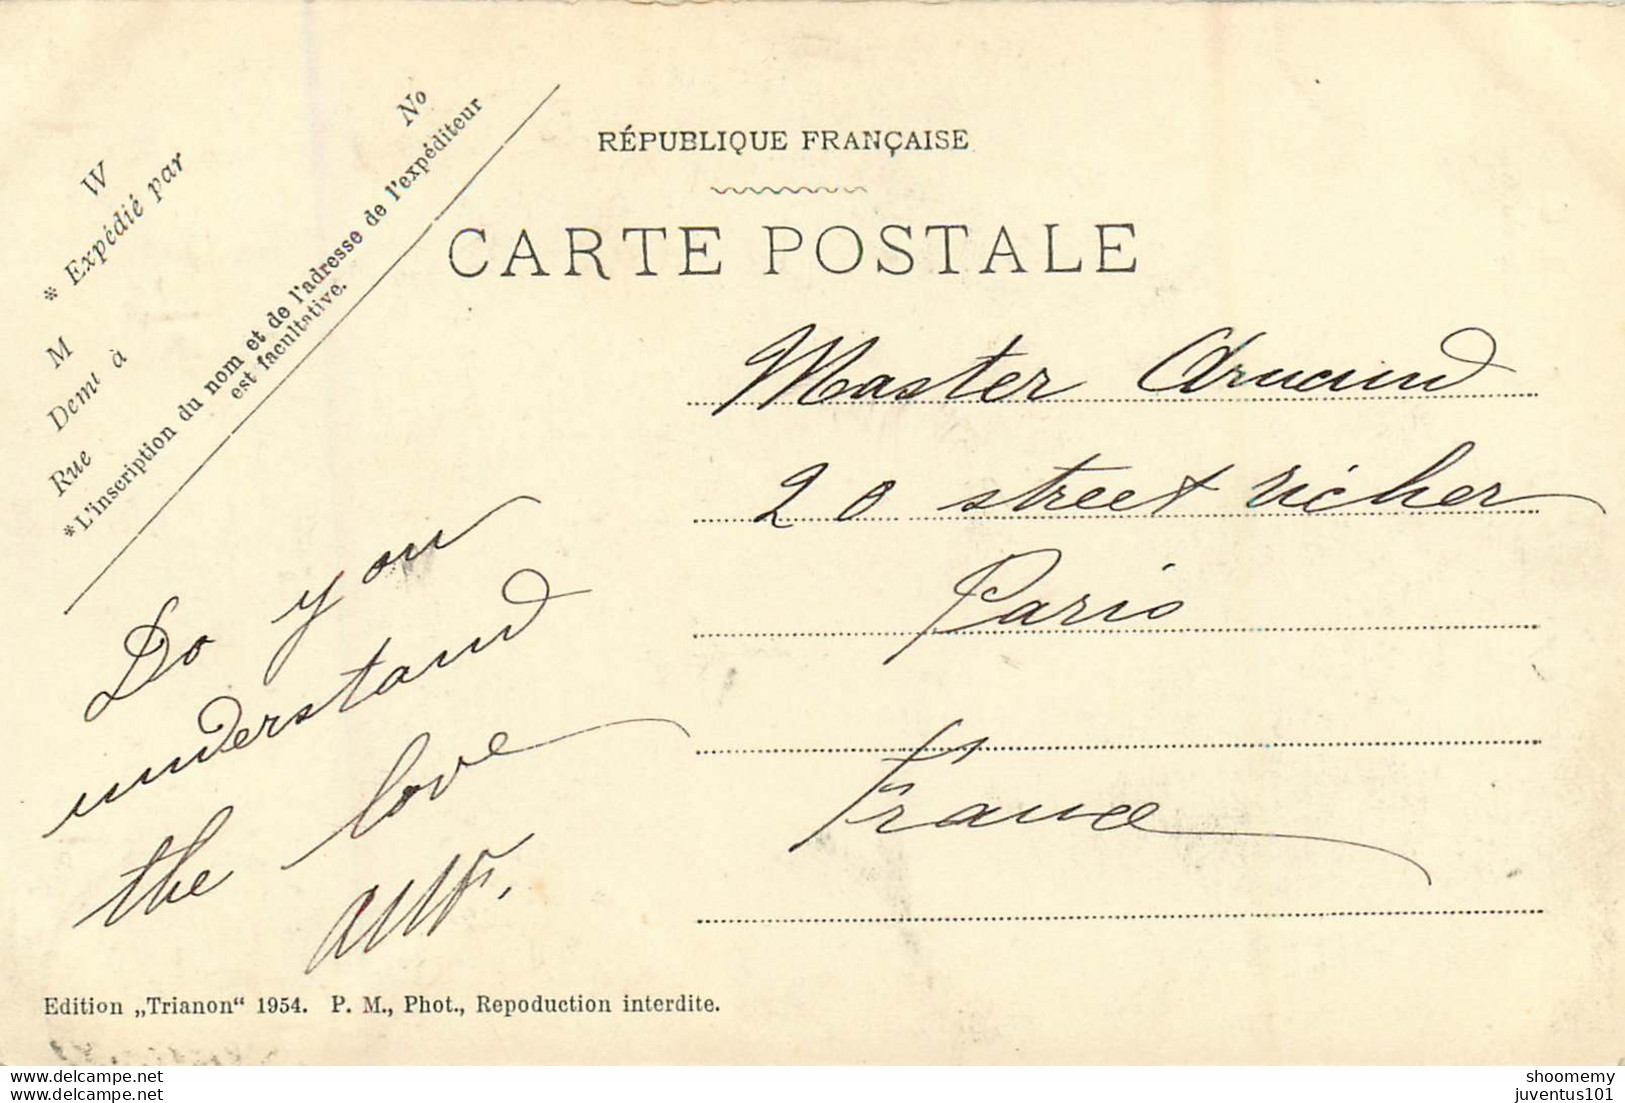 RÉPUBLIQUE FRANÇAISE
CARTE POSTALE
W
No
* Expédié par
M
Demt à
Rue
*L'inscription du nom et de l'adresse de l'expéditeur
est facultative.
Master
20 street richer
Paris
France
Do you
understand
the love
Edition „Trianon“ 1954. P. M., Phot., Repoduction interdite.
delcampe.net
shoomemy
juventus101